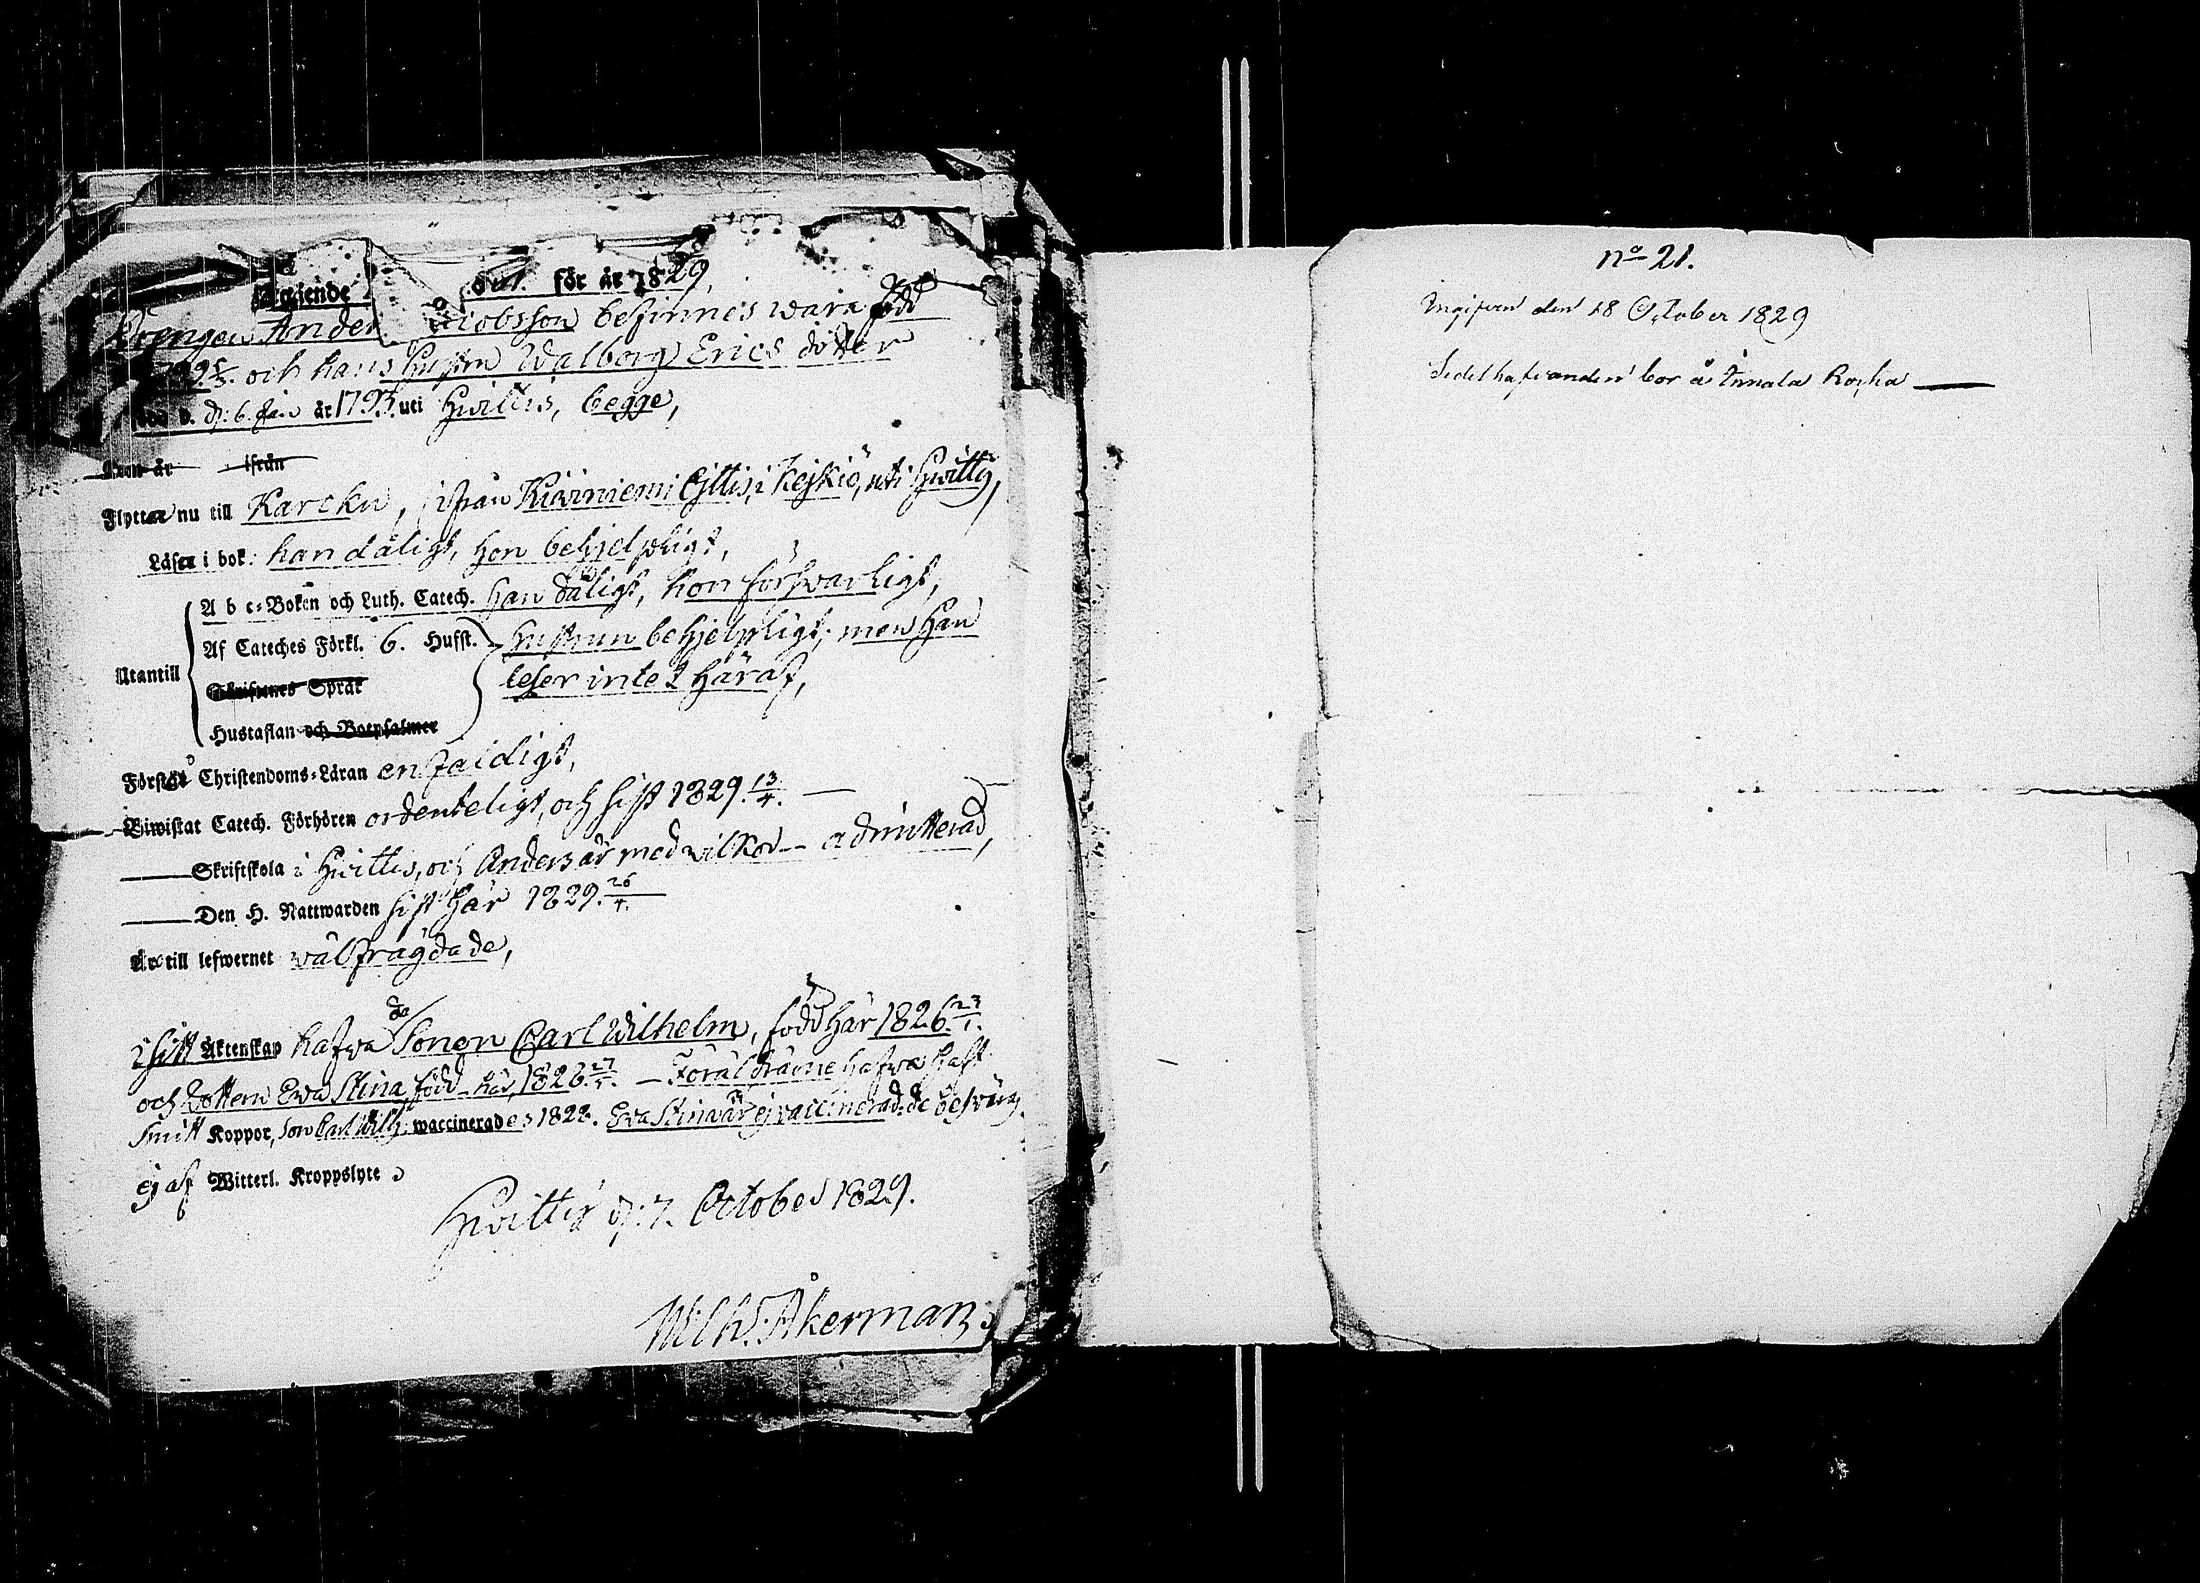 för år 1829,
Drengen Anders Jacobsson befinnes wara född
och hans hustru Walborg Erics dotter
född d. 6. Jan år 1795. uti Hwittis, begge,
Kom år ifrån
Flyttar nu till Karcku, ifrån Kiwiniemi Gittis, i Kejkiö, uti Hwittis,
Läser i bok: han dåligt, hon behjelpligt,
A b c-Boken och Luth. Catech. han dåligt, hon förswarligt,
Utantill
Af Cateches Förkl. 6. Hufst. hustrun behjelpligt, men han
Skriftenes Språk läser intet häraf,
Hustaflan och Botpsalmer
Förstå Christendoms-Läran enfaldigt,
Biwistat Catech. Förhören ordenteligt, och sist 1829. 13/4.
Skriftskola i Hwittis, och Anders är med wilkor admitterad,
Den H. Nattwarden sist här 1829. 26/4.
Är till lefwernet wälfrägdade,
I sitt Äktenskap hafwa de Sonen Carl Wilhelm, född här 1826. 23/1.
och Dottern Ewa Stina, född här, 1828. — Föräldrarne hafwa haft
Smitt Koppor, Son Carl Wilh. waccinerades 1828. Ewa Stina är ej vaccinerad: de beswäras
ej af Witterl. Kroppslyte
Hwittis d. 7. October 1829.
Wilh. Åkerman
nº 21.
Ingifven den 18 October 1829
Sedelhafvanden bor å Innala Rojha